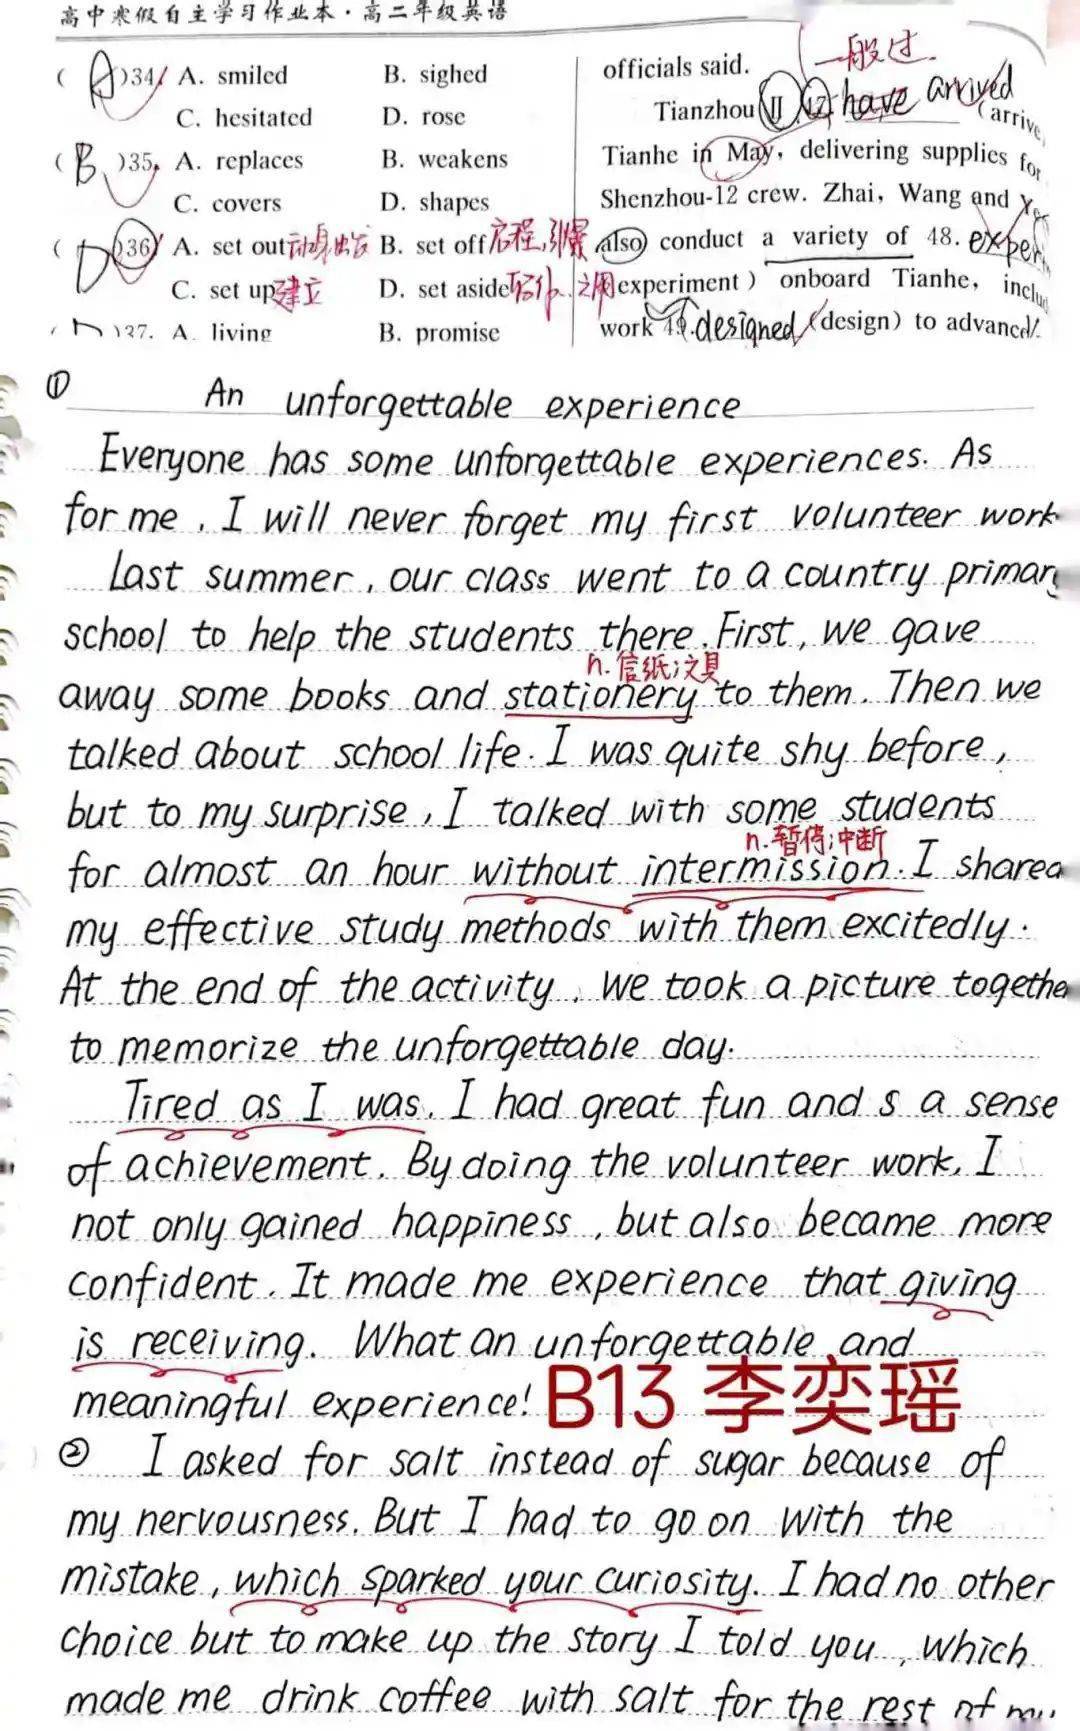 高中寒假自主学习作业本·高二年级英语
( A )34. A. smiled B. sighed
C. hesitated D. rose
( B )35. A. replaces B. weakens
C. covers D. shapes
( D )36. A. set out动身出发 B. set off启程,引爆
C. set up建立 D. set aside
A. living B. promise
officials said.
一般过
Tianzhou have arrived (arrive
Tianhe in May, delivering supplies for
Shenzhou-12 crew. Zhai, Wang and
also conduct a variety of 48.
(experiment) onboard Tianhe,
work 49. designed (design) to advanced
①
An unforgettable experience
Everyone has some unforgettable experiences. As
for me, I will never forget my first volunteer work
Last summer, our class went to a country primary
school to help the students there. First, we gave
n.信纸;文具
away some books and stationery to them. Then we
talked about school life. I was quite shy before,
but to my surprise, I talked with some students
n.暂停;中断
for almost an hour without intermission. I shared
my effective study methods with them excitedly.
At the end of the activity, we took a picture together
to memorize the unforgettable day.
Tired as I was, I had great fun and s a sense
of achievement. By doing the volunteer work, I
not only gained happiness, but also became more
confident. It made me experience that giving
is receiving. What an unforgettable and
meaningful experience!
B13 李奕瑶
② I asked for salt instead of sugar because of
my nervousness. But I had to go on with the
mistake, which sparked your curiosity. I had no other
choice but to make up the story I told you, which
made me drink coffee with salt for the rest of my